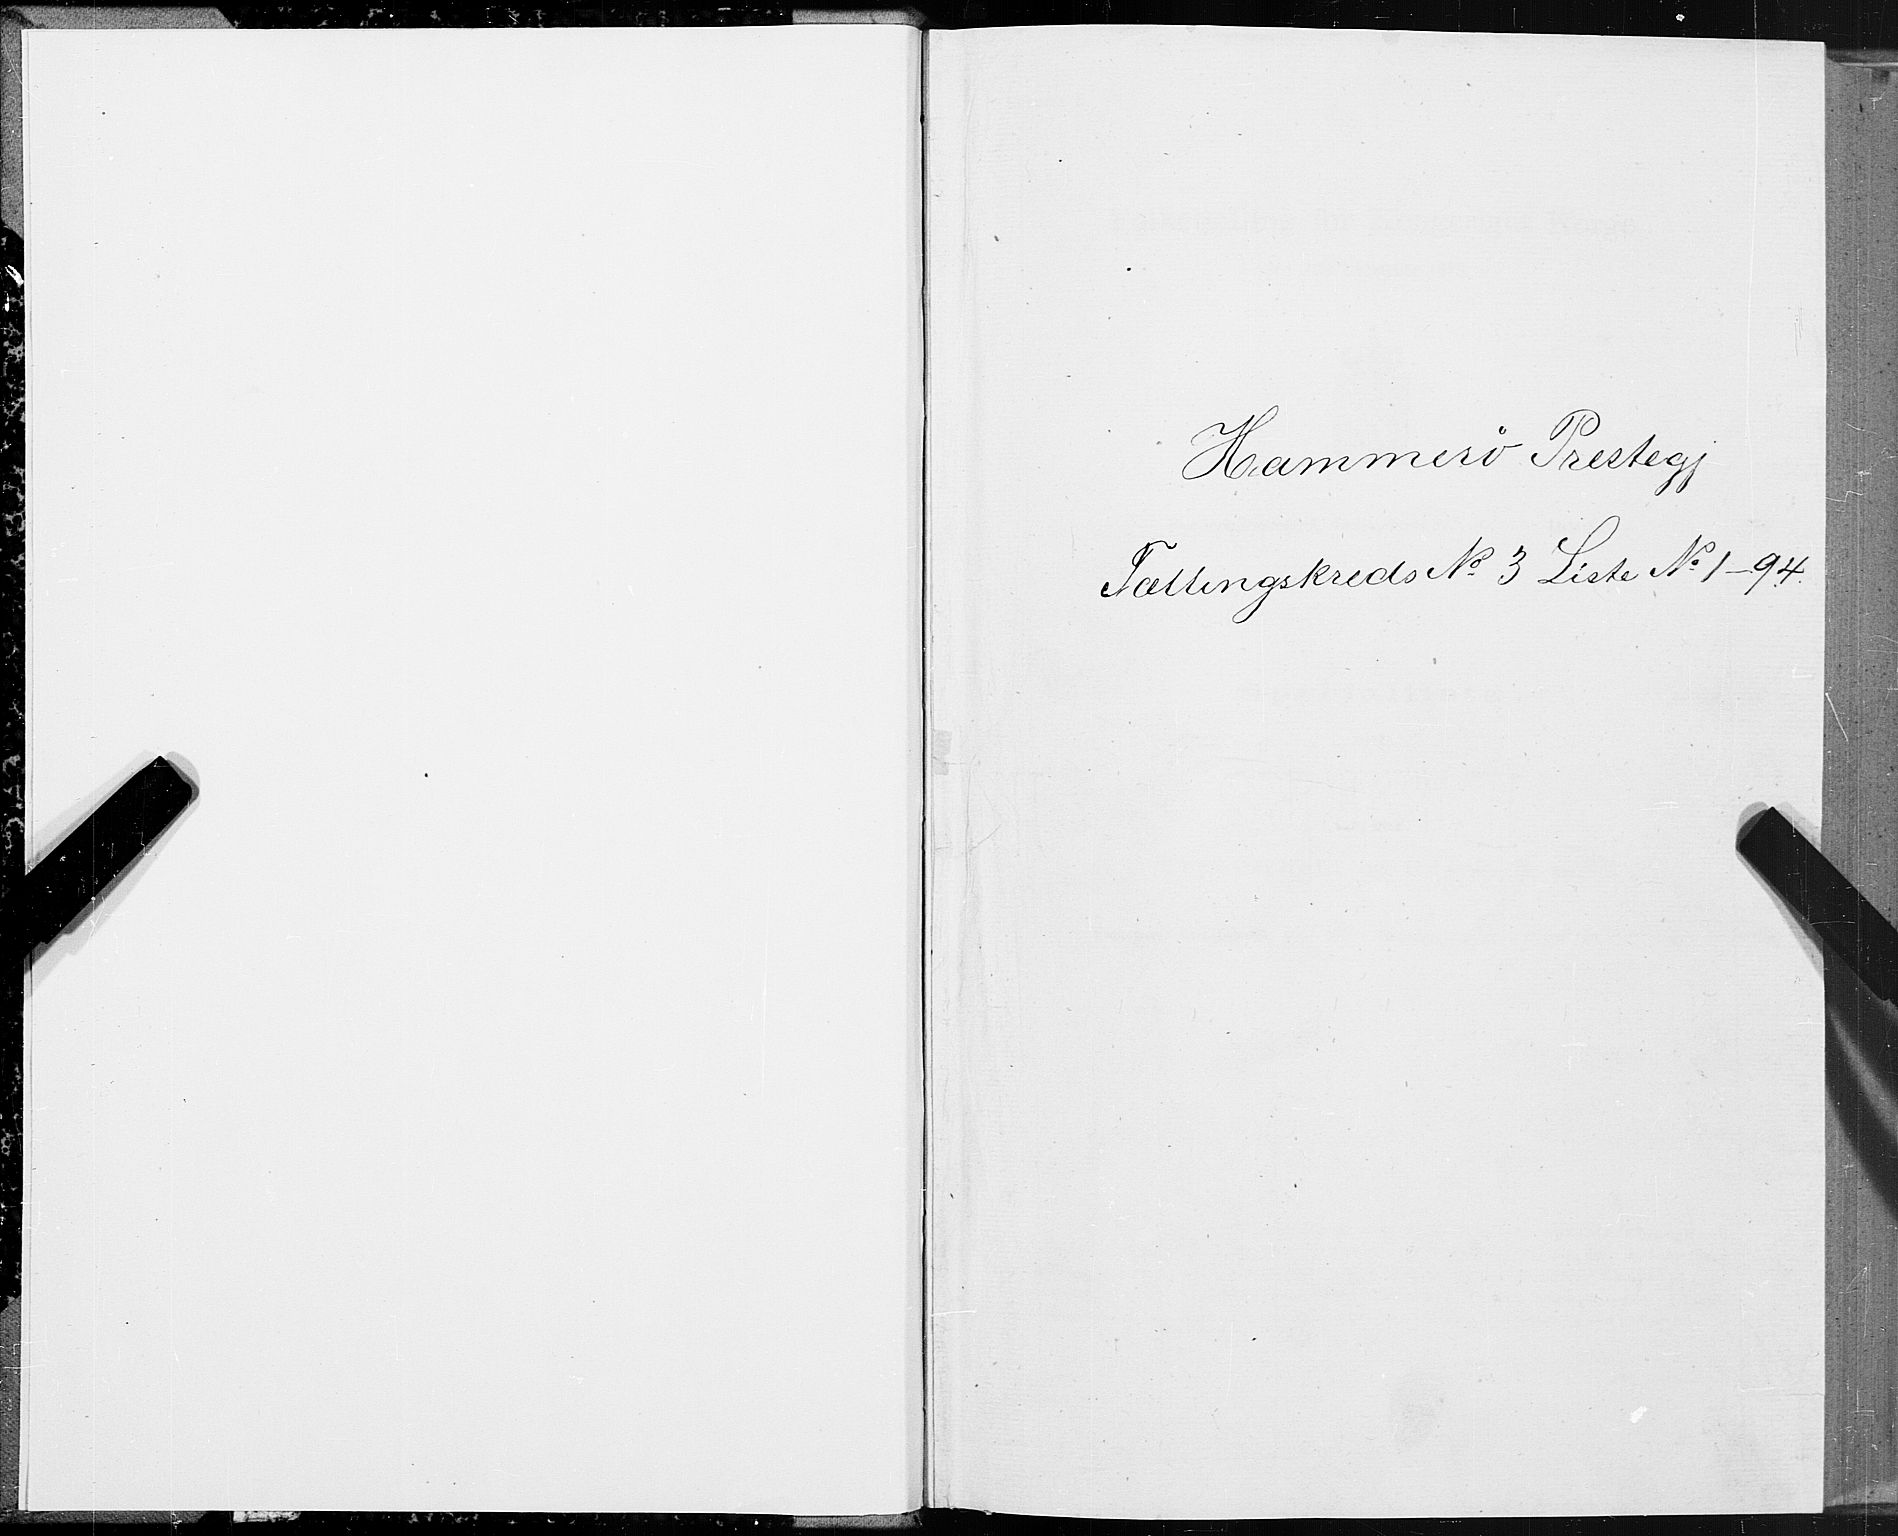 Hammerö Prestegj
Tællingskreds No 3 Liste No 1-94.